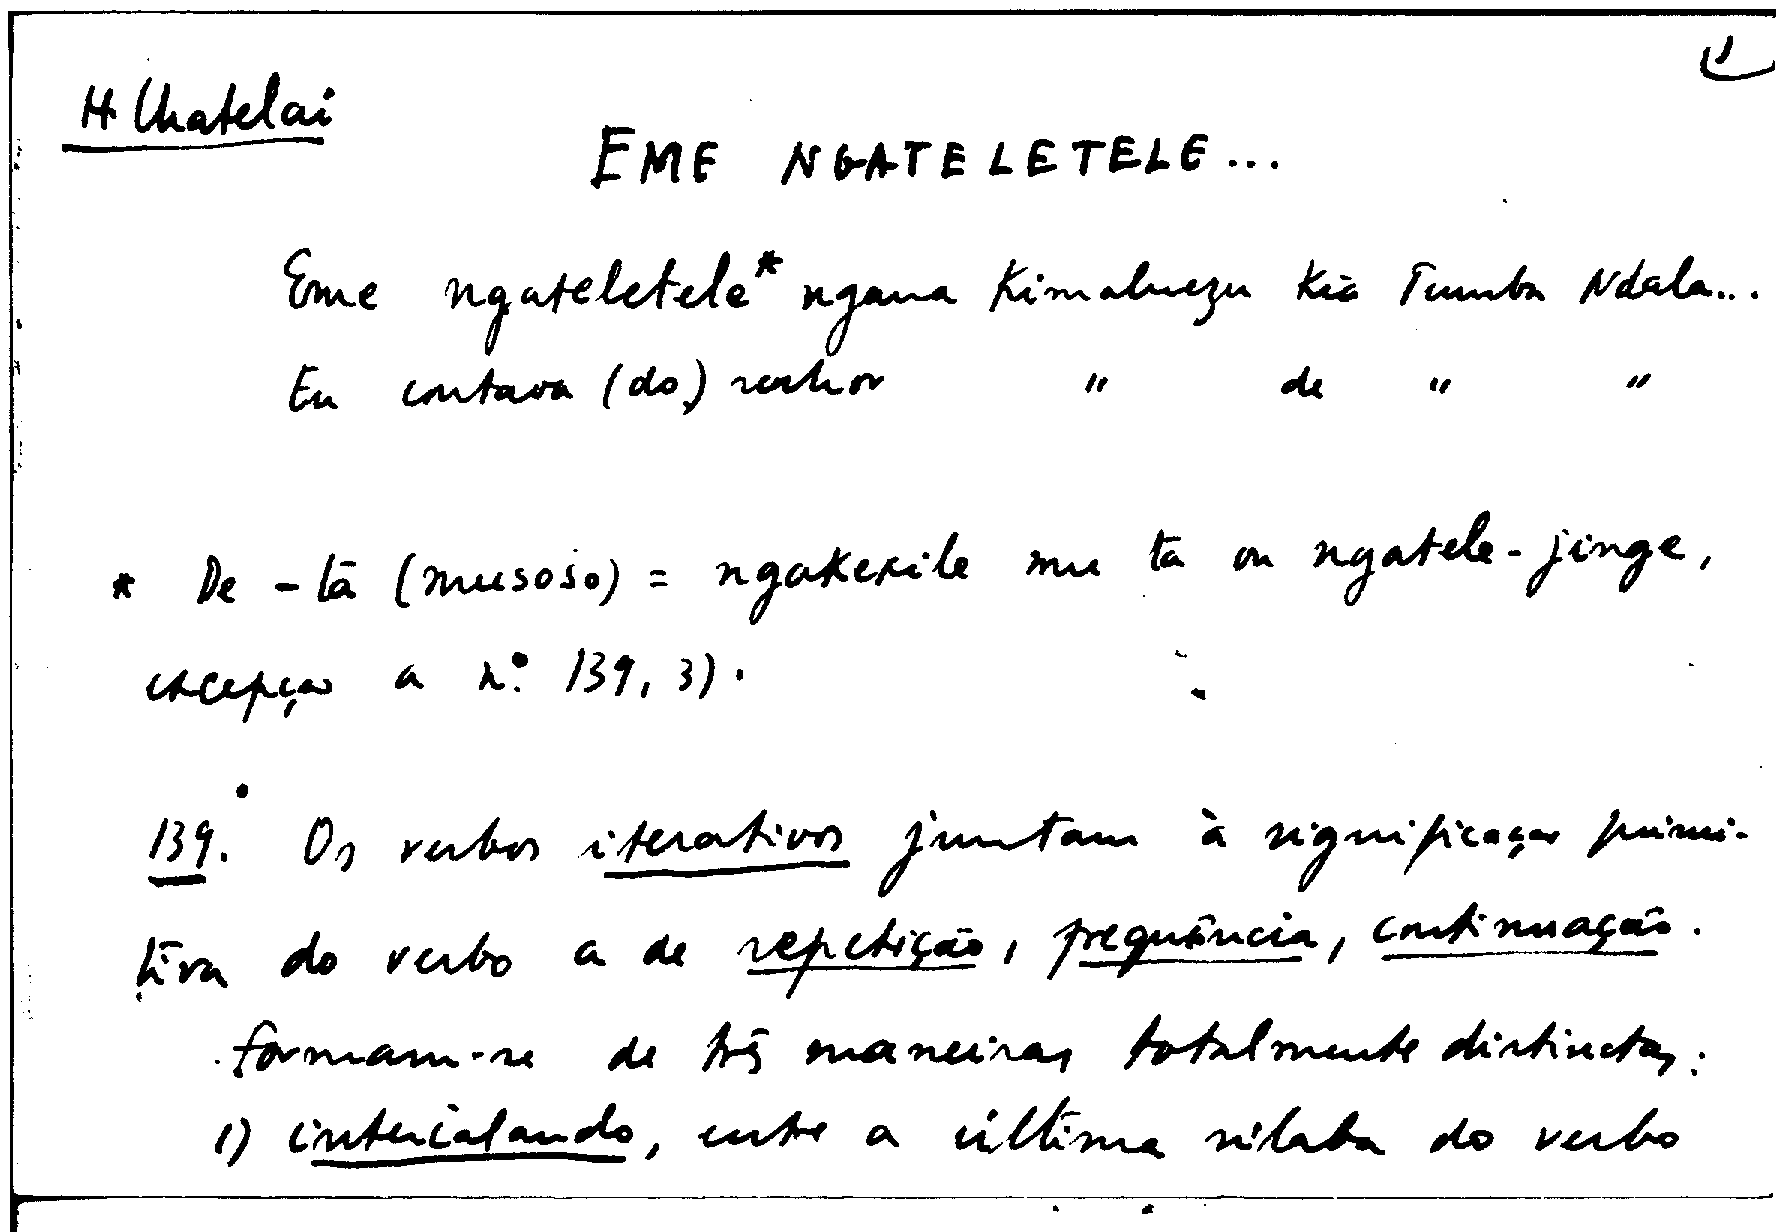 1
H Chatelai
EME NGATELETELE...
Eme ngateletele* ngana Kimalauezu Kia Tumba Ndala...
Eu contava (do) senhor " de " "
* De -tã (musoso) = ngakexile mu ta ou ngatele-jinge,
excepção a n.º 139, 3).
139. Os verbos iterativos juntam à significação primi-
tiva do verbo a de repetição, frequência, continuação.
formam-se de três maneiras totalmente distinctas:
1) intercalando, entre a última sílaba do verbo